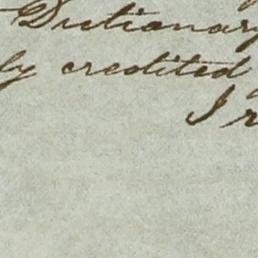 Dictionary
ly credited
I r